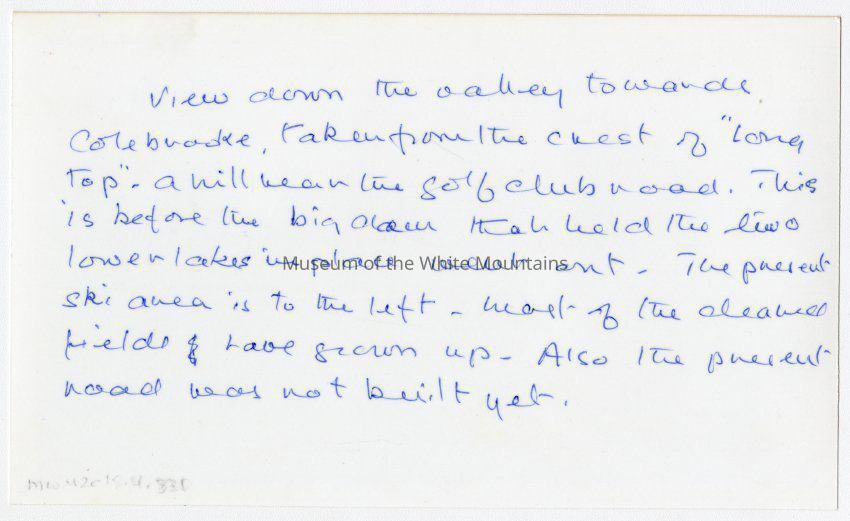 View down the valley towards
Colebrooke, taken from the crest of "Long
Top" - a hill near the golf club road. This
is before the big dam that held the two
lower lakes in place went out - The present
ski area is to the left - most of the cleared
fields & have grown up - Also the present
road was not built yet.
Museum of the White Mountains